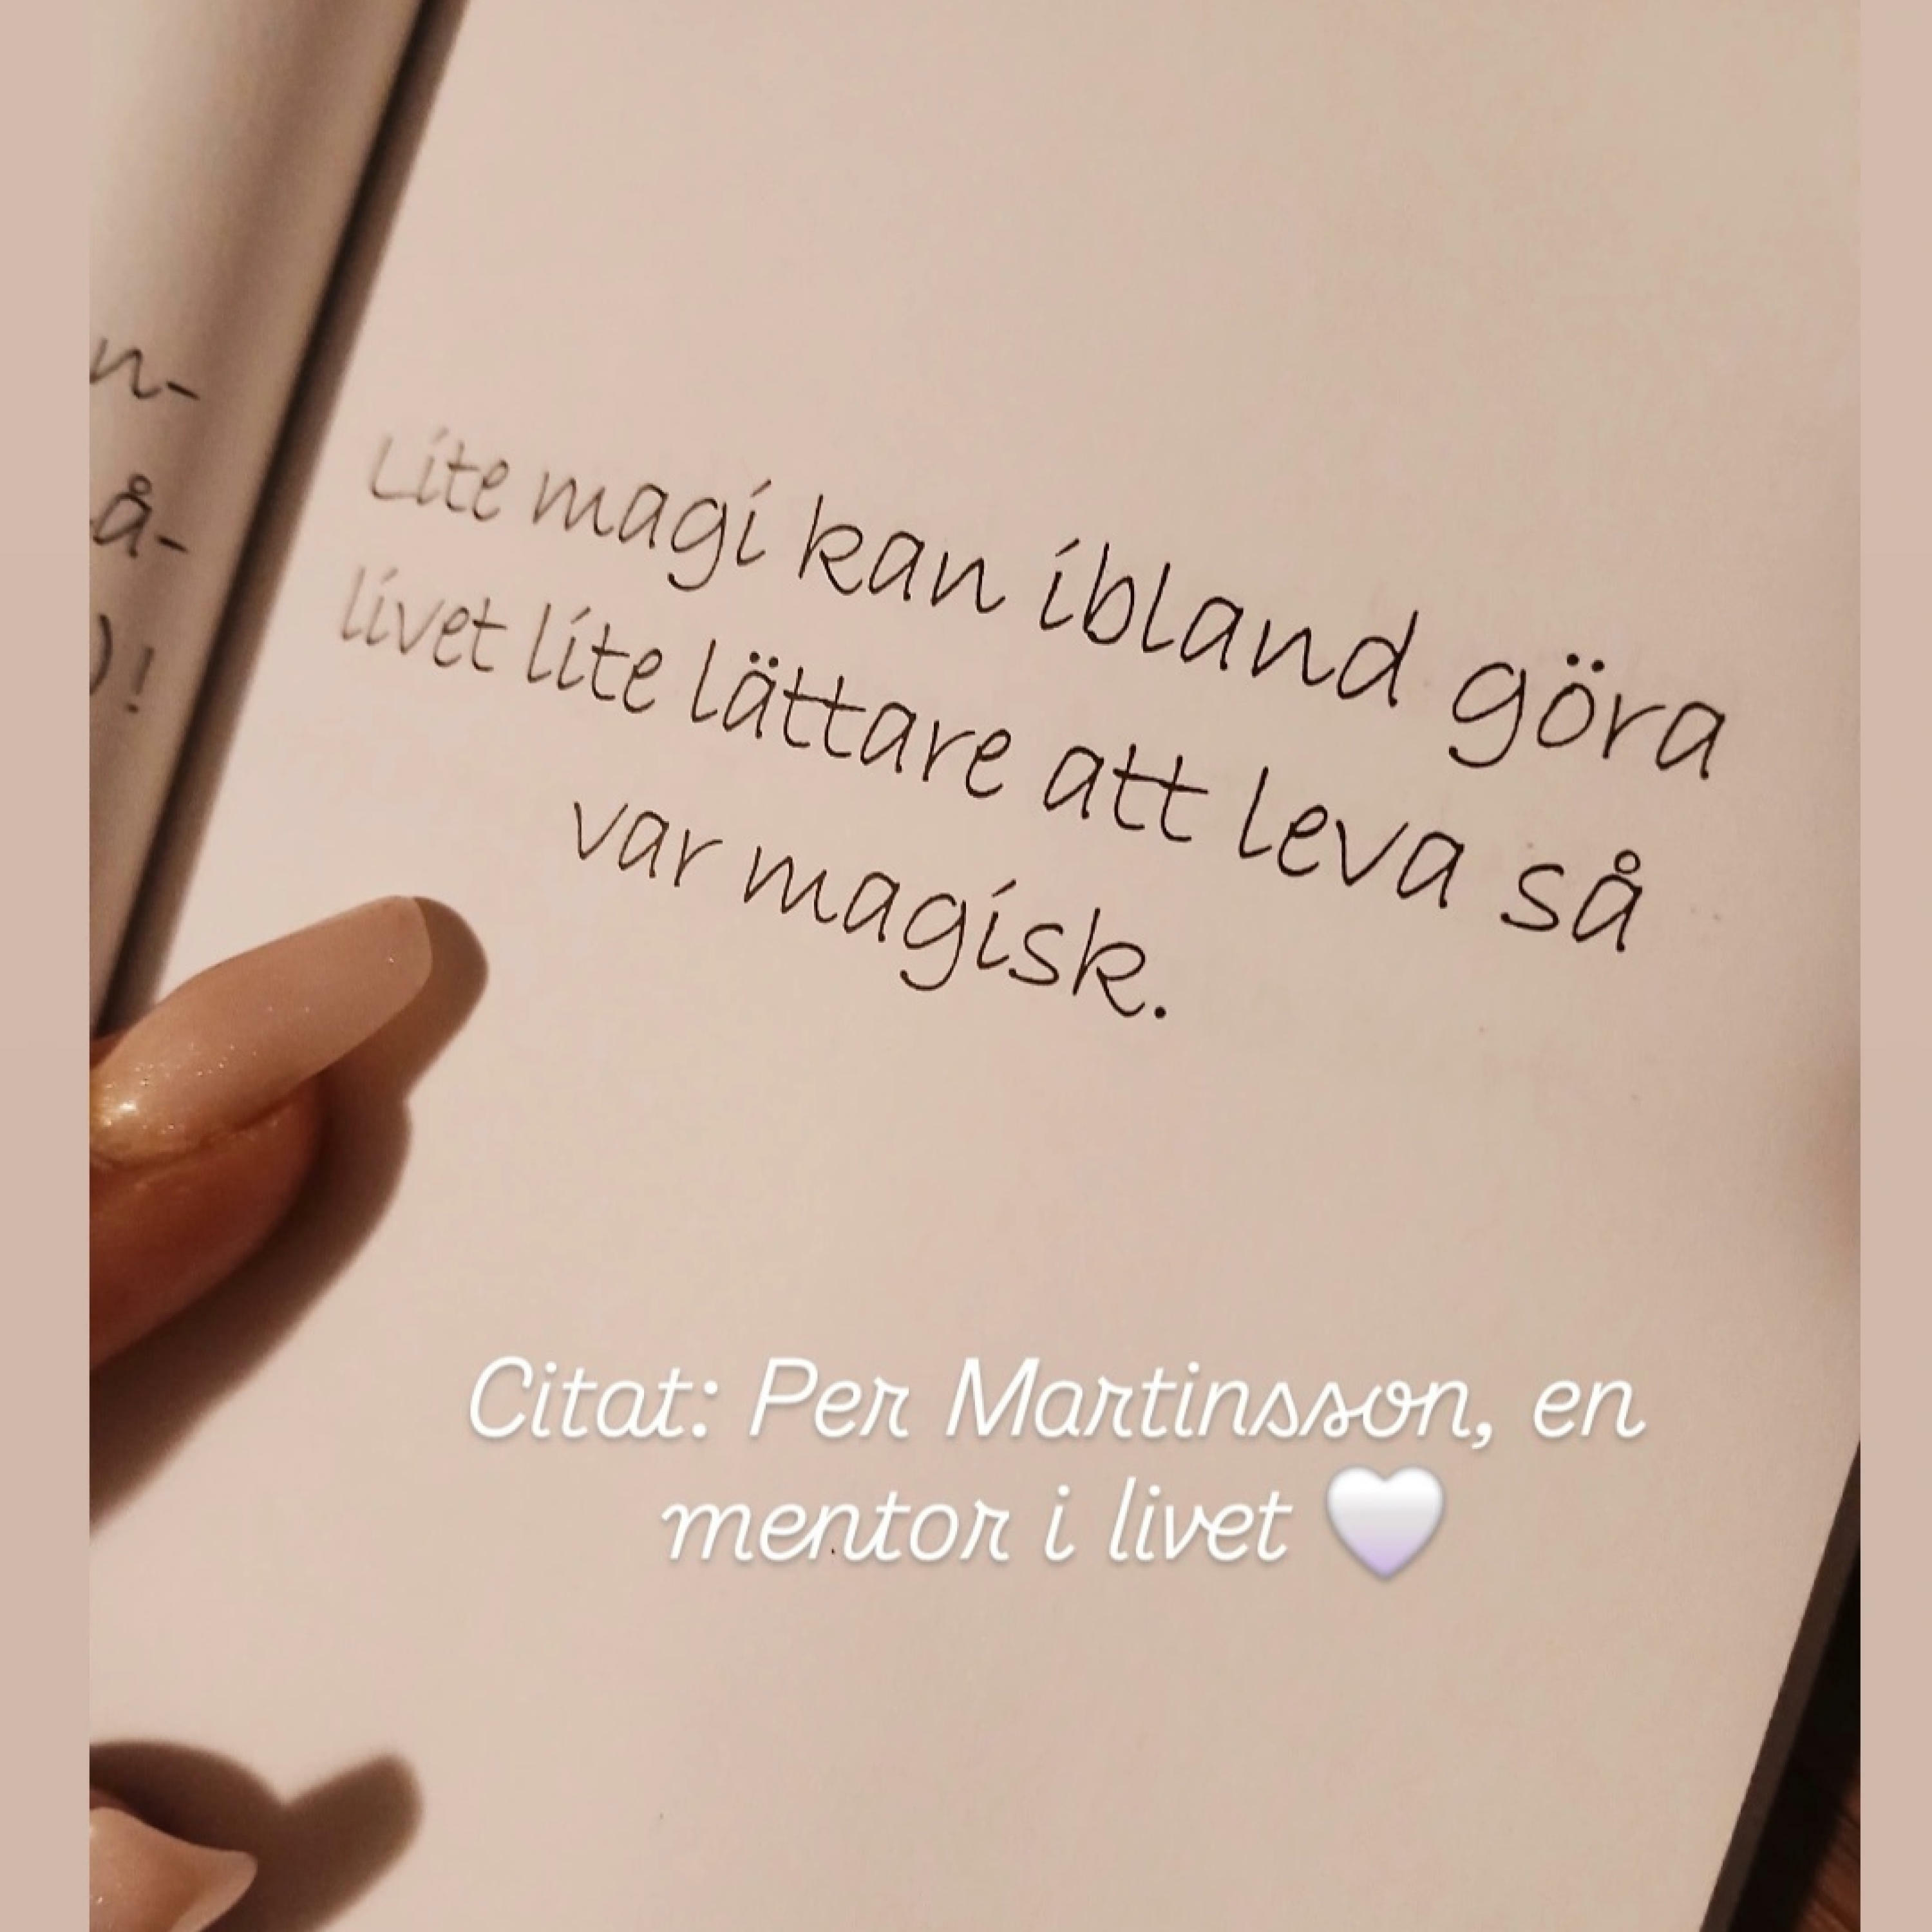 n-
å-
)!
Lite magi kan ibland göra
livet lite lättare att leva så
var magisk.
Citat: Per Martinsson, en
mentor i livet 🤍